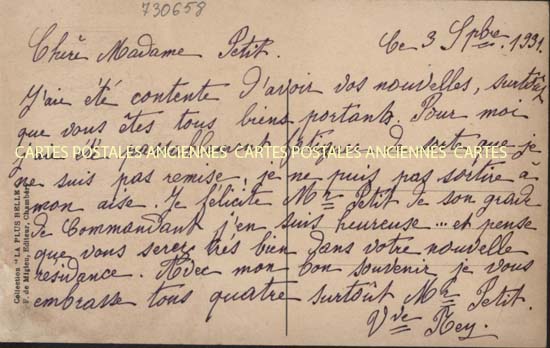 730658
Chère Madame Petit. Ce 3 Spbre 1931.
J'ai été contente d'avoir vos nouvelles, surtôut
que vous êtes tous biens portants. Pour moi
je
CARTES POSTALES ANCIENNES CARTES POSTALES ANCIENNES CARTES
ne suis pas remise, je ne puis pas sortire à
mon aise. Je félicite Mr Petit de son grade
de Commandant j'en suis heureuse... et pense
que vous serez très bien dans votre nouvelle
résidance. Avec mon bon souvenir je vous
embrasse tous quatre surtôut Mr Petit.
Vve Rey.
Collection "LA PLUS BELLE"
F. de Miglio, Editeur, Chambéry